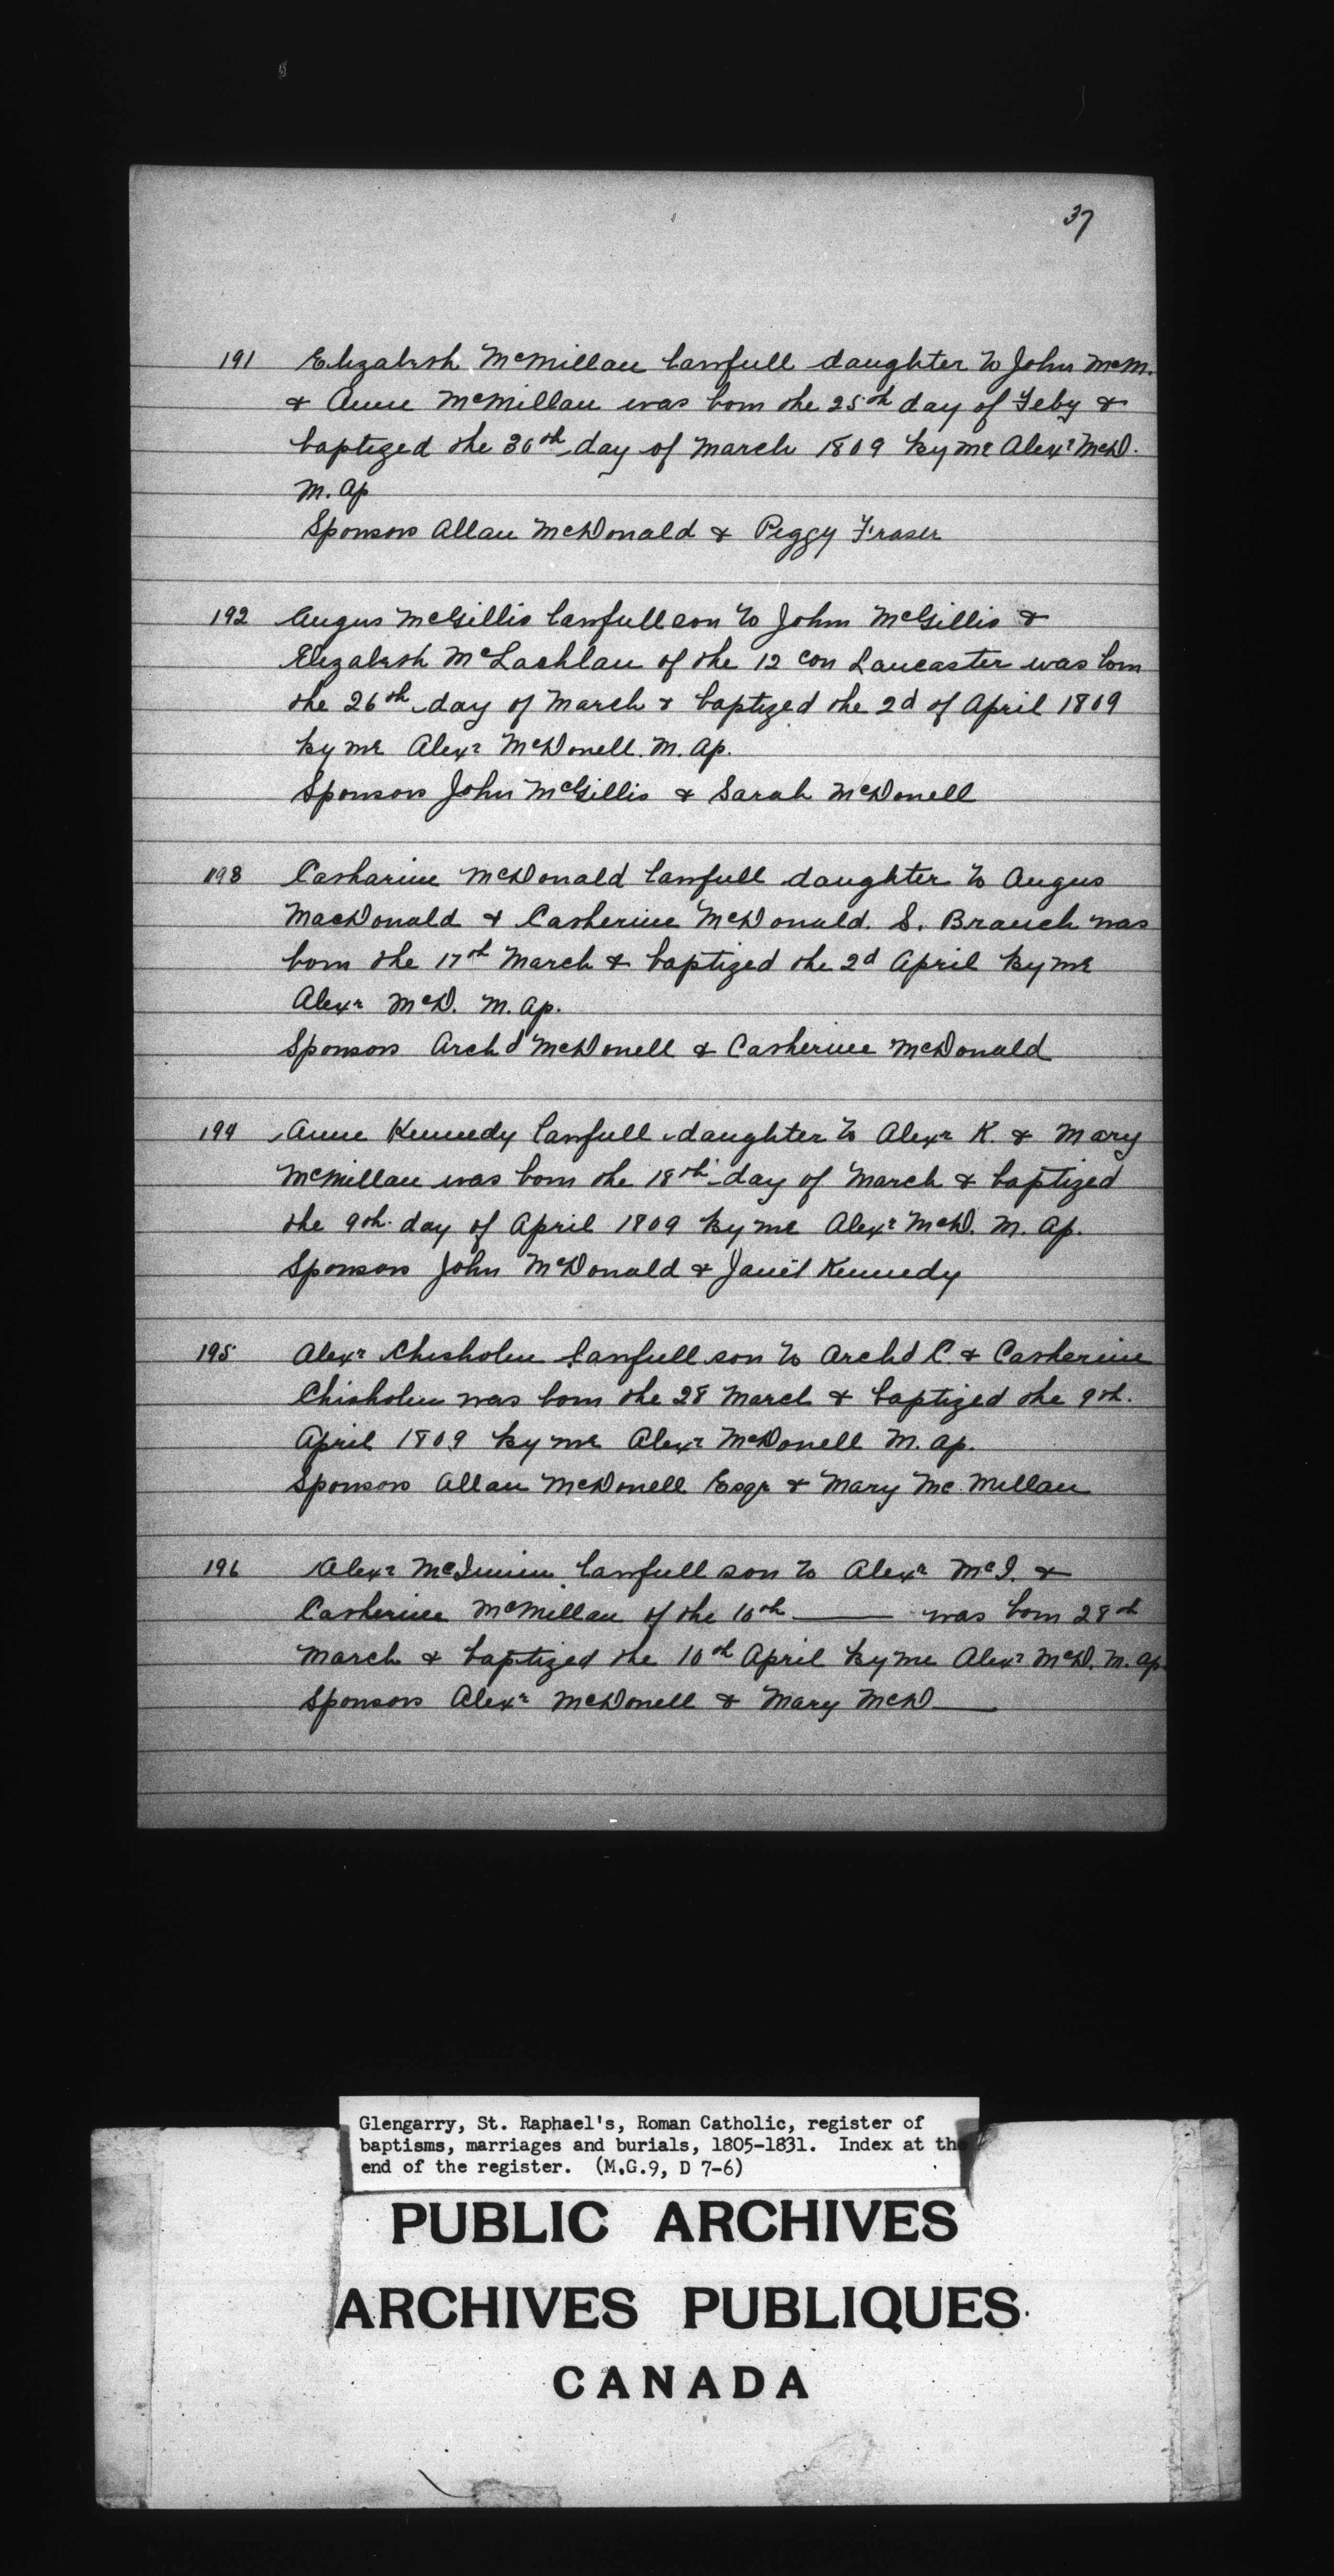 37
191 Elizabeth McMillan lawfull daughter to John McM.
& Anne McMillan was born the 25th day of Feby &
baptized the 30th day of March 1809 by me Alexr McD.
M. Ap
Sponsors Allan McDonald & Peggy Fraser
192 Angus McGillis lawfull son to John McGillis &
Elizabeth McLachlan of the 12 con Lancaster was born
the 26th day of March & baptized the 2d of April 1809
by me Alexr McDonell. M. Ap.
Sponsors John McGillis & Sarah McDonell
193 Catharine McDonald lawfull daughter to Angus
MacDonald & Catherine McDonald. S. Branch was
born the 17th March & baptized the 2d April by me
Alexr McD. M. Ap.
Sponsors Archd McDonell & Catherine McDonald
194 Anne Kennedy lawfull daughter to Alexr K. & Mary
McMillan was born the 18th day of March & baptized
the 9th. day of April 1809 by me Alexr McD. M. Ap.
Sponsors John McDonald & Janet Kennedy
195 Alexr Chisholm lawfull son to Archd C. & Catherine
Chisholm was born the 28 March & baptized the 9th.
April 1809 by me Alexr McDonell M. Ap.
Sponsors Allan McDonell Esqr & Mary Mc Millan
196 Alexr McInnin lawfull son to Alexr McI. &
Catherine McMillan of the 10th —— was born 28th
March & baptized the 10th April by me Alexr McD. M. Ap
Sponsors Alexr McDonell & Mary McD——
Glengarry, St. Raphael's, Roman Catholic, register of
baptisms, marriages and burials, 1805-1831. Index at the
end of the register. (M.G.9, D 7-6)
PUBLIC ARCHIVES
ARCHIVES PUBLIQUES
CANADA